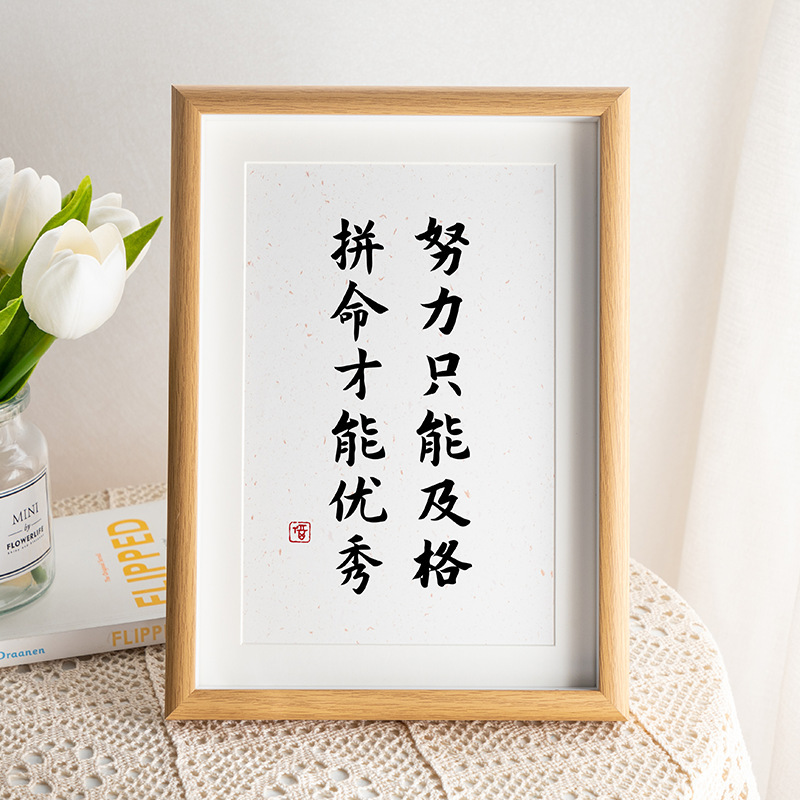 努力只能及格
拼命才能优秀
MINI
by
FLOWERLIFE
FLIPPED
FLIPP
Draanen